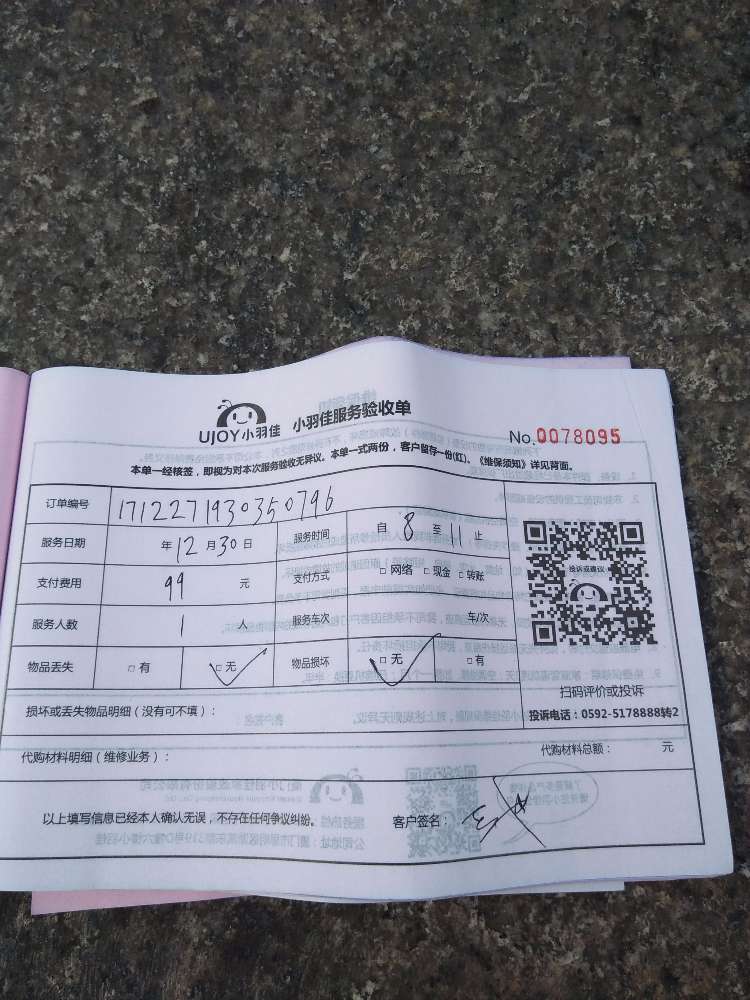 UJOY小羽佳 小羽佳服务验收单
No.0078095
本单一经核签，即视为对本次服务验收无异议。本单一式两份，客户留存一份(红)。《维保须知》详见背面。
订单编号 1712271930350796
服务日期 年 12 月 30 日 服务时间 自 8 至 11 止
支付费用 99 元 支付方式 □ 网络 □ 现金 □ 转账
服务人数 1 人 服务车次 车/次
物品丢失 □ 有 □ 无 物品损坏 □ 无 □ 有
投诉或建议
扫码评价或投诉
投诉电话：0592-5178888转2
损坏或丢失物品明细（没有可不填）：
代购材料明细（维修业务）： 代购材料总额： 元
以上填写信息已经本人确认无误，不存在任何争议纠纷。 客户签名：